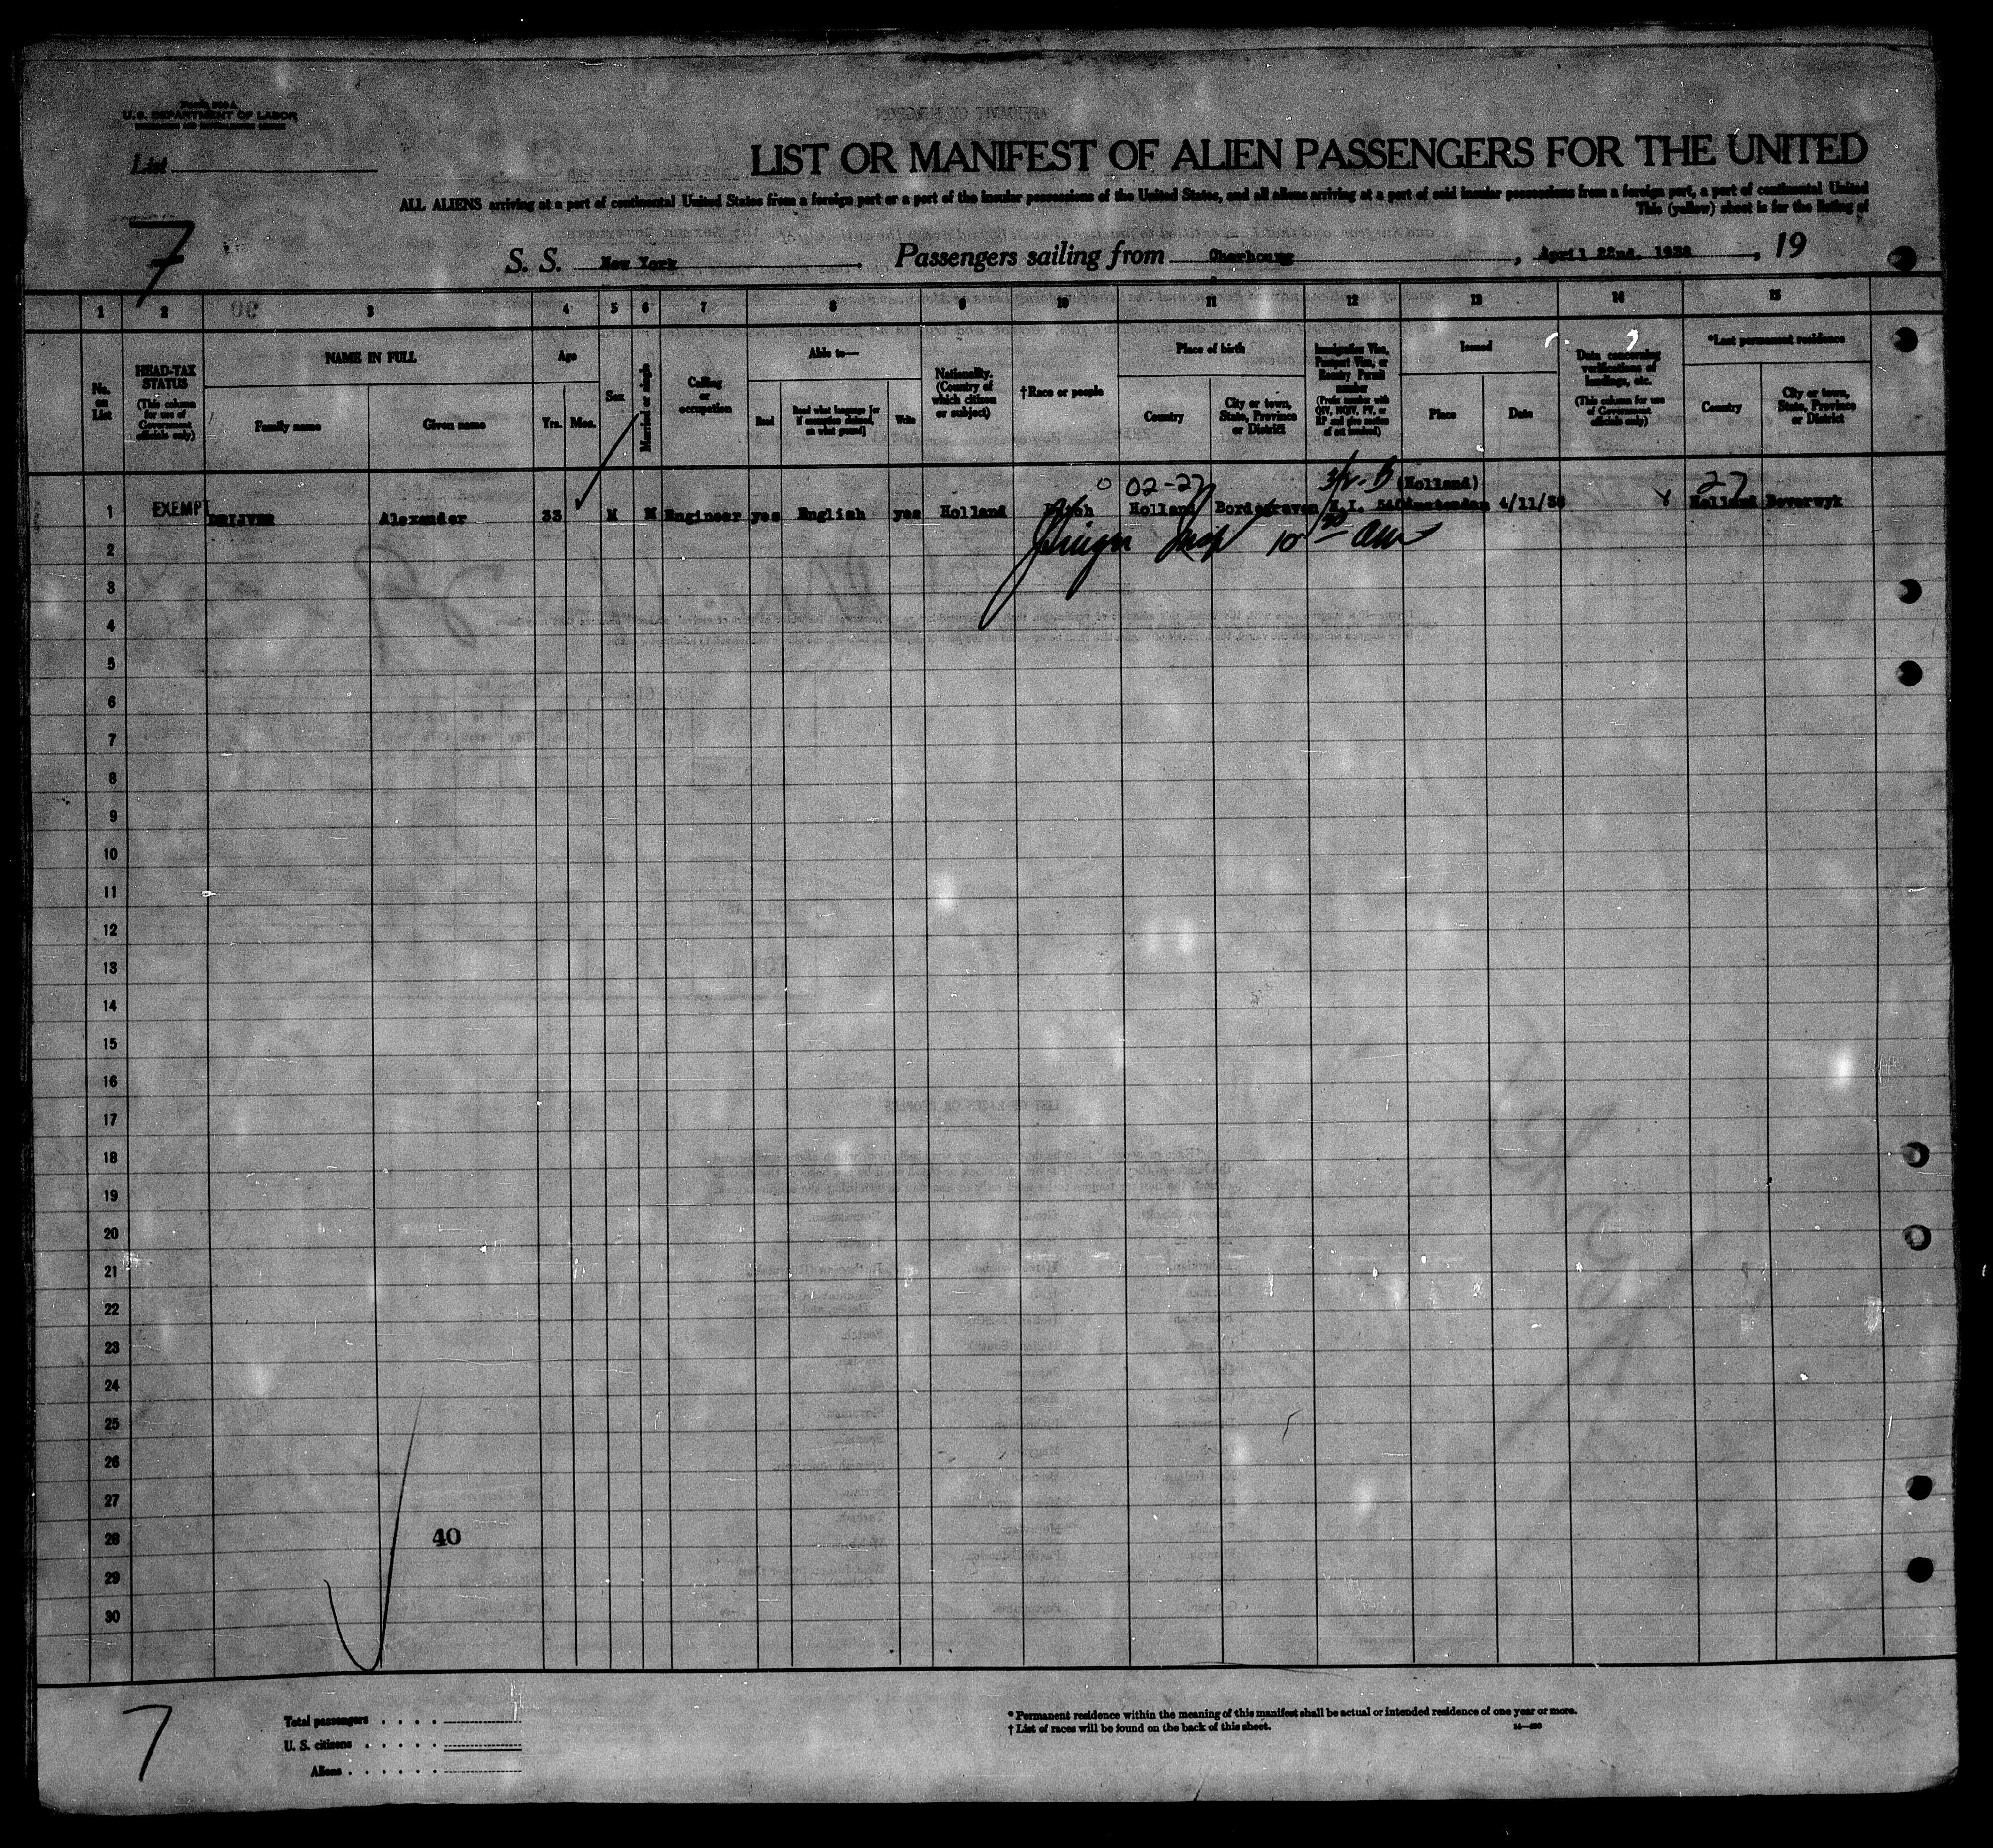 Form 500 A
U.S. DEPARTMENT OF LABOR
List
LIST OR MANIFEST OF ALIEN PASSENGERS FOR THE UNITED
ALL ALIENS arriving at a port of continental United States from a foreign port or a port of the insular possessions of the United States, and all aliens arriving at a port of said insular possessions from a foreign port, a port of continental United
This (yellow) sheet is for the listing of
7
S. S. New York Passengers sailing from Cherbourg, April 22nd. 1938, 19
1 2 3 4 5 6 7 8 9 10 11 12 13 14 15
No. on List
HEAD-TAX STATUS (This column for use of Government officials only)
NAME IN FULL
Family name Given name
Age
Yrs. Mos.
Sex
Married or single
Calling or occupation
Able to—
Read Read what language [or if exemption claimed, on what ground] Write
Nationality. (Country of which citizen or subject)
†Race or people
Place of birth
Country City or town, State, Province or District
Immigration Visa, Passport Visa, or Reentry Permit number (Prefix number with QIV, NQIV, PV, or RP and give section of act involved)
Issued
Place Date
Data concerning verifications of landings, etc. (This column for use of Government officials only)
*Last permanent residence
Country City or town, State, Province or District
02-27 (Holland) 27
1 EXEMPT DRIJVER Alexander 33 M M Engineer yes English yes Holland Dutch Holland Bordegraven Amsterdam 4/11/38 Holland Beverwyk
10 30 am
2
3
4
5
6
7
8
9
10
11
12
13
14
15
16
17
18
19
20
21
22
23
24
25
26
27
28 40
29
30
7
Total passengers
U. S. citizens
Aliens
* Permanent residence within the meaning of this manifest shall be actual or intended residence of one year or more.
† List of races will be found on the back of this sheet.